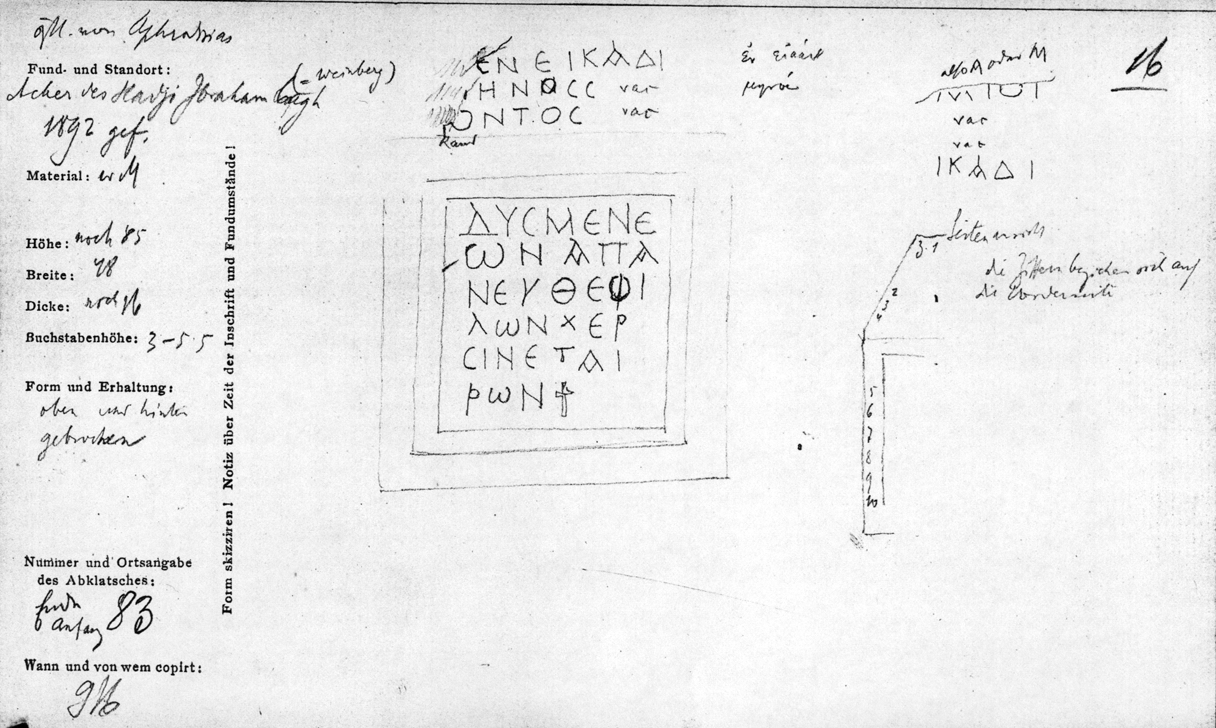 Fund- und Standort:
Acker des Hadji Ibraham
1892 gef.
Material:
Höhe: noch 85
Breite: 48
Dicke: noch
Buchstabenhöhe: 3–5 5
Form und Erhaltung:
oben und hinten
gebrochen
Nummer und Ortsangabe
des Abklatsches:
83
Wann und von wem copirt:
Form skizziren! Notiz über Zeit der Inschrift und Fundumstände!
ΕΝΕΙΚΑΔΙ
ΗΝΟϹϹ vac
ΟΝΤΟϹ vac
Rand
ΔΥϹΜΕΝΕ
ΩΝΑΠΑ
ΝΕΥΘΕΦΙ
ΛΩΝ×ΕΡ
ϹΙΝΕΤΑΙ
ΡΩΝ
also A oder M
vac
vac
ΙΚΑΔΙ
Seitenansicht
die Ziffern beziehen sich auf
die Vorderseite
5
6
7
8
9
10
16